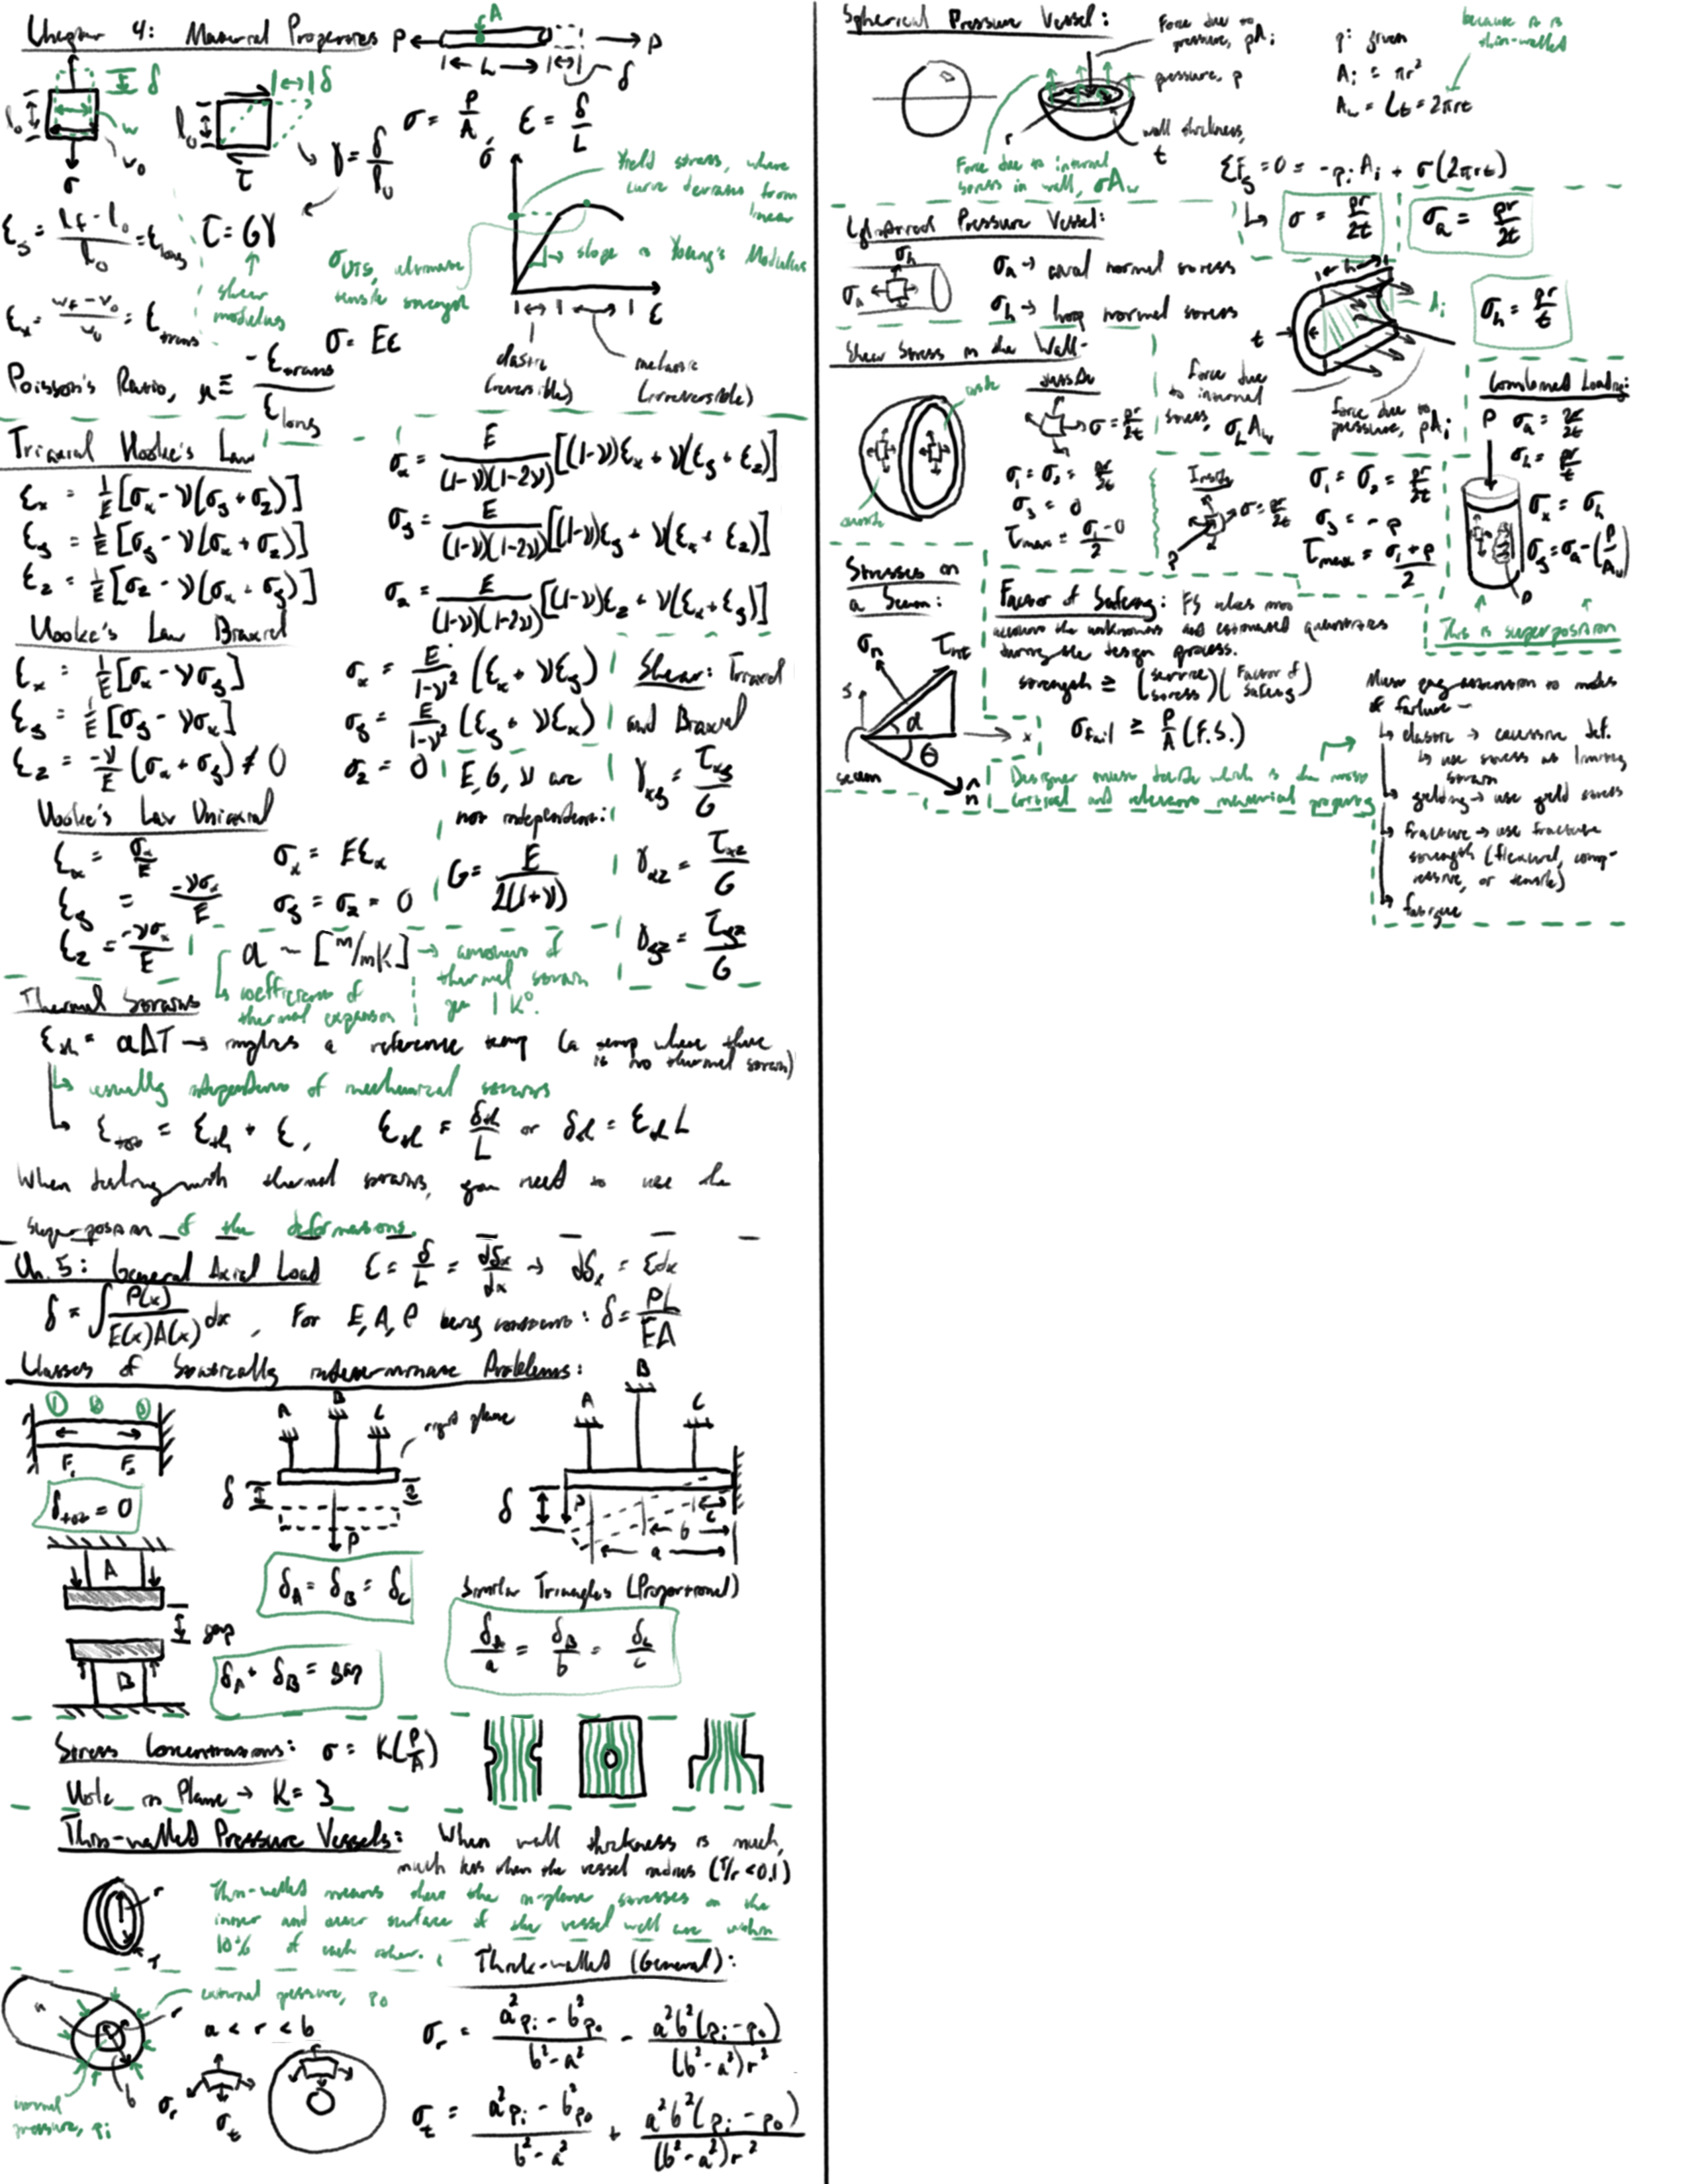 Chapter 4: Material Properties
P A P
L δ
δ l₀ w w₀ σ
δ l₀ τ
γ = δ/l₀
σ = P/A, ε = δ/L
σ
Yield stress, where
curve deviates from
linear
slope is Young's Modulus
σ_UTS, ultimate
tensile strength
ε
elastic
(reversible)
inelastic
(irreversible)
ε_y = (l_f - l₀)/l₀ = ε_long
τ = Gγ
shear
modulus
ε_x = (w_f - w₀)/w₀ = ε_trans
σ = Eε
Poisson's Ratio, ≡ -ε_trans/ε_long
Triaxial Hooke's Law
ε_x = 1/E [σ_x - ν(σ_y + σ_z)]
ε_y = 1/E [σ_y - ν(σ_x + σ_z)]
ε_z = 1/E [σ_z - ν(σ_x + σ_y)]
σ_x = E/((1-ν)(1-2ν)) [(1-ν)ε_x + ν(ε_y + ε_z)]
σ_y = E/((1-ν)(1-2ν)) [(1-ν)ε_y + ν(ε_x + ε_z)]
σ_z = E/((1-ν)(1-2ν)) [(1-ν)ε_z + ν(ε_x + ε_y)]
Hooke's Law Biaxial
ε_x = 1/E [σ_x - νσ_y]
ε_y = 1/E [σ_y - νσ_x]
ε_z = -ν/E (σ_x + σ_y) ≠ 0
σ_x = E/(1-ν²) (ε_x + νε_y)
σ_y = E/(1-ν²) (ε_y + νε_x)
σ_z = 0
Shear: Triaxial
and Biaxial
γ_xy = τ_xy/G
γ_xz = τ_xz/G
γ_yz = τ_yz/G
E, G, ν are
not independent:
G = E/(2(1+ν))
Hooke's Law Uniaxial
ε_x = σ_x/E
σ_x = Eε_x
ε_y = -νσ_x/E
σ_y = σ_z = 0
ε_z = -νσ_x/E
α ~ [m/mK] → amount of
thermal strain
per 1 K°.
↳ coefficient of
thermal expansion
Thermal Strains
ε_th = αΔT → implies a reference temp (a temp where there
is no thermal strain)
↳ usually independent of mechanical strains
↳ ε_tot = ε_th + ε, ε_th = δ_th/L or δ_th = ε_th L
When dealing with thermal strains, you need to use the
superposition of the deformations.
Ch. 5: General Axial Load ε = δ/L = dδ_x/dx → dδ_x = εdx
δ = ∫ P(x)/(E(x)A(x)) dx, For E, A, P being constant: δ = PL/EA
Classes of Statically indeterminate Problems:
① ② ③
F₁ F₂
δ_tot = 0
A B C
rigid plane
δ P
δ_A = δ_B = δ_C
A B C
δ P c
b
a
Similar Triangles (Proportional)
δ_A/a = δ_B/b = δ_C/c
A
gap
B
δ_A + δ_B = gap
Stress Concentrations: σ = K(P/A)
Hole in Plane → K = 3
Thin-walled Pressure Vessels: When wall thickness is much,
much less then the vessel radius (T/r < 0.1)
r
T
Thin-walled means there the in-plane stresses on the
inner and outer surface of the vessel wall are within
10% of each other.
Thick-walled (General):
external pressure, p₀
a r
a < r < b
b
σ_r
σ_t
pressure, p_i
σ_r = (a²p_i - b²p_o)/(b² - a²) - a²b²(p_i - p_o)/((b² - a²)r²)
σ_t = (a²p_i - b²p_o)/(b² - a²) + a²b²(p_i - p_o)/((b² - a²)r²)
Spherical Pressure Vessel:
Force due to
pressure, pA_i
pressure, p
r
wall thickness,
t
Force due to internal
stress in wall, σA_w
p: given
A_i = πr²
A_w = Lt = 2πrt
because it is
thin-walled
ΣF_y = 0 = -p_i A_i + σ(2πrt)
↳ σ = pr/2t
Cylindrical Pressure Vessel:
σ_h
σ_a
σ_a → axial normal stress
σ_h → hoop normal stress
σ_a = pr/2t
h
t
A_i
σ_h = pr/t
force due
to internal
stress, σ_h A_w
force due to
pressure, pA_i
Shear Stress in the Wall-
inside
outside
σ = pr/2t
σ₁ = σ₂ = pr/2t
σ₃ = 0
τ_max = (σ₁ - 0)/2
Inside
σ = pr/2t
P
σ₁ = σ₂ = pr/2t
σ₃ = -p
τ_max = (σ₁ + p)/2
Combined Loading:
P
σ_a = pr/2t
σ_h = pr/t
σ_x = σ_h
σ_y = σ_a - (P/A_w)
p
This is superposition
Stresses on
a Seam:
σ_n τ_nt
α
θ
x
seam
n
Factor of Safety: FS takes into
account the unknowns and estimated quantities
during the design process.
strength ≥ (service stress)(Factor of Safety)
σ_fail ≥ P/A (F.S.)
Designer must decide which is the most
critical and relevant material property
Must pay attention to modes
of failure -
↳ elastic → excessive def.
↳ use stress as limiting
strain
↳ yielding → use yield stress
↳ fracture → use fracture
strength (flexural, comp-
ressive, or tensile)
↳ fatigue